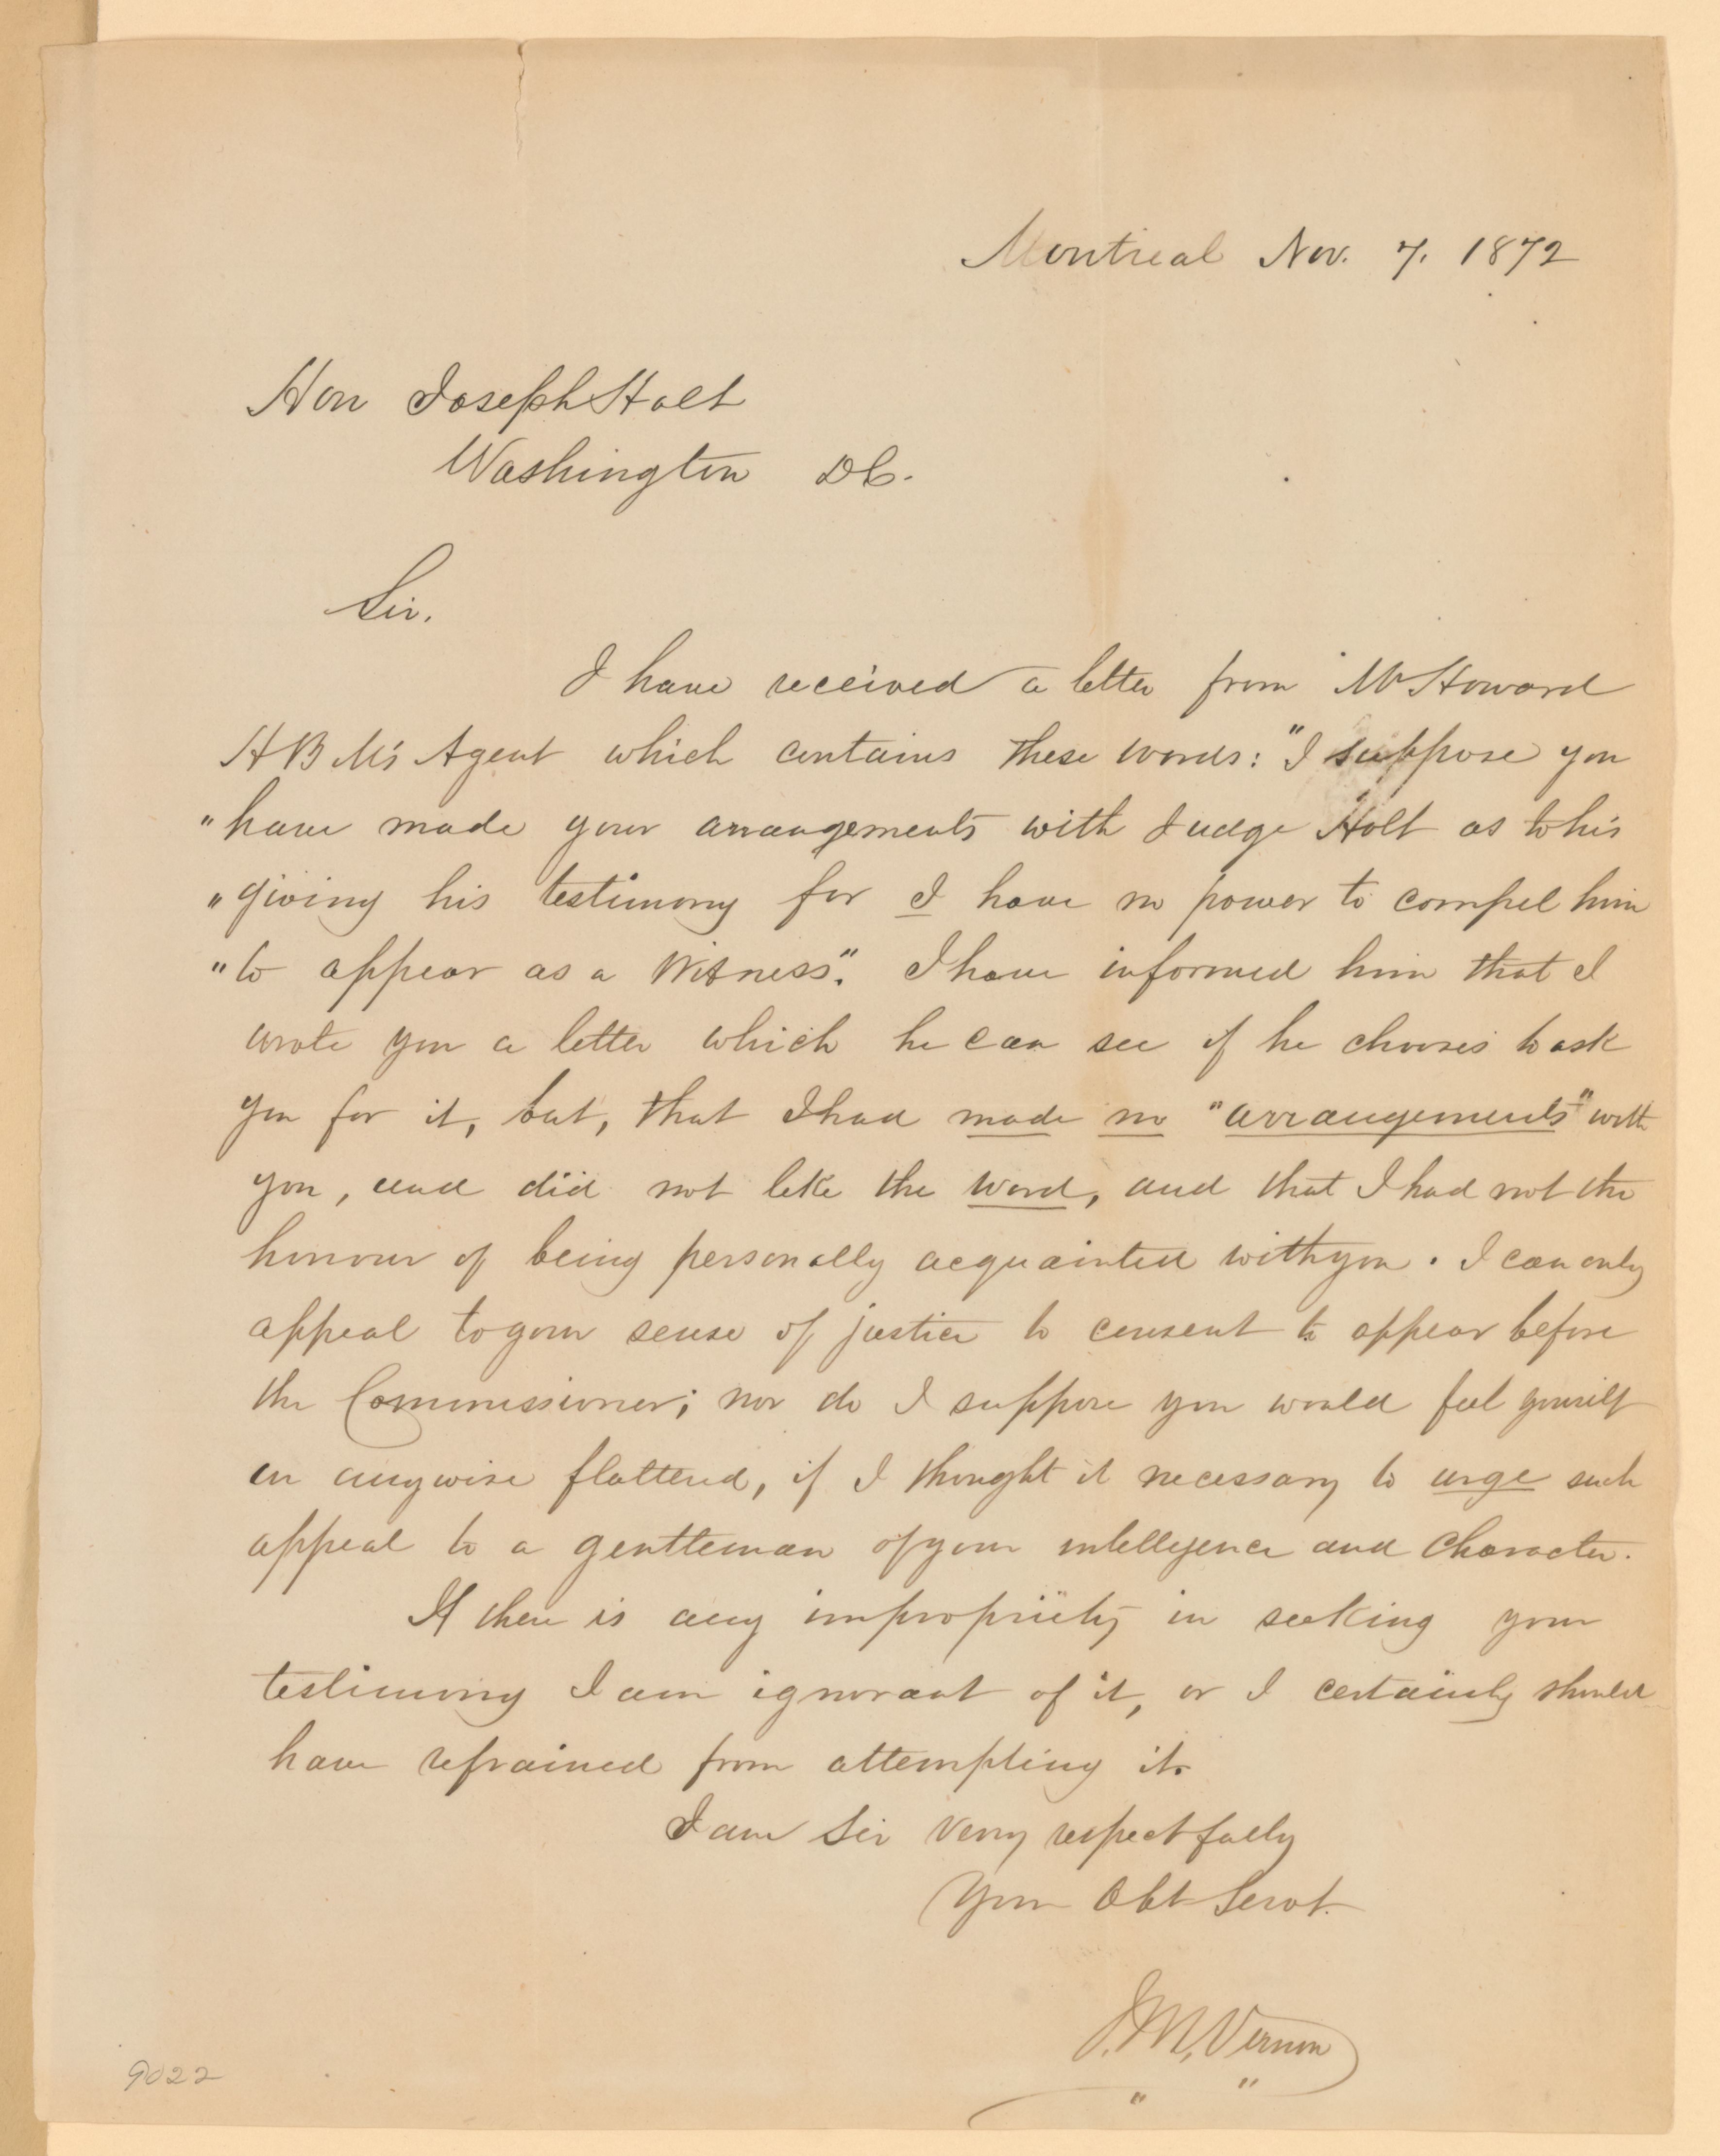 Montreal Nov. 7. 1872
Hon Joseph Holt
Washington DC.
Sir.
I have received a letter from Mr Howard
HBM's Agent which contains these words: "I suppose you
"have made your arrangements with Judge Holt as to his
"giving his testimony for I have no power to compel him
"to appear as a Witness". I have informed him that I
wrote you a letter which he can see if he chooses to ask
you for it, but, that I had made no "arrangements" with
you, and did not like the word, and that I had not the
honour of being personally acquainted with you. I can only
appeal to your sense of justice to consent to appear before
the Commissioner; nor do I suppose you would feel yourself
in anywise flattered, if I thought it necessary to urge such
appeal to a gentleman of your intelligence and Character.
If there is any impropriety in seeking your
testimony I am ignorant of it, or I certainly should
have refrained from attempting it.
I am Sir very respectfully
Your Obt Servt.
J. M. Vernon
" "
9022